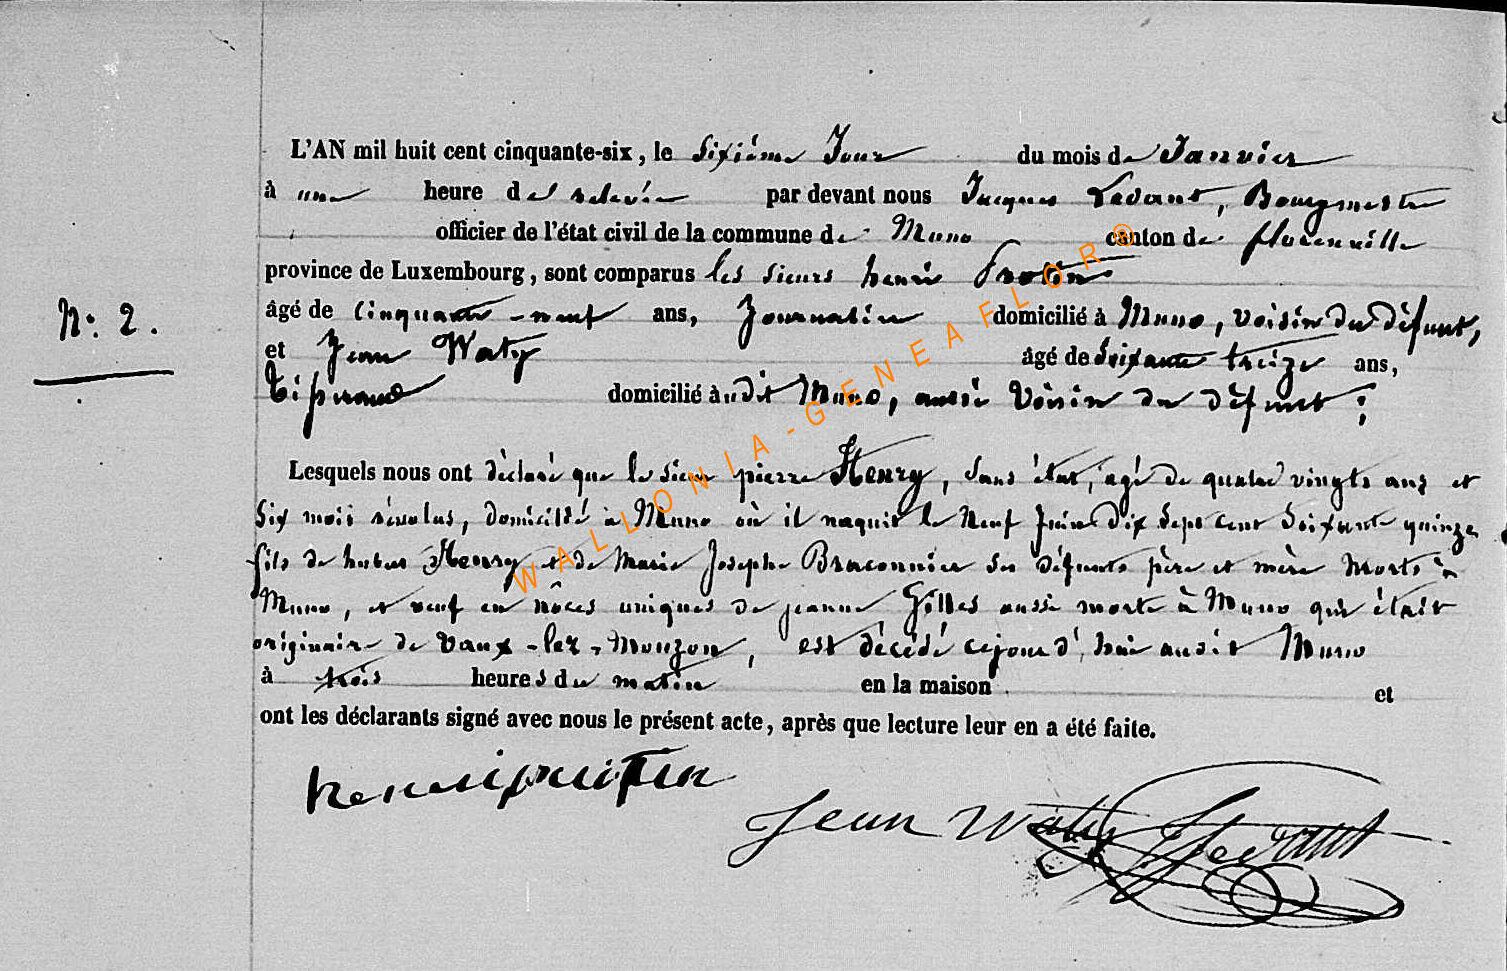 L'AN mil huit cent cinquante-six, le Sixième Jour du mois de Janvier
à une heure de relevée par devant nous Jacques Ledant, Bourgmestre
officier de l'état civil de la commune de Muno canton de florenville
province de Luxembourg, sont comparus les sieurs henri
âgé de Cinquante-neuf ans, Journalier domicilié à Muno, voisin du défunt,
N: 2.
et Jean Waty âgé de Soixante treize ans,
Tisserand domicilié àudit Muno, aussi Voisin du défunt;
Lesquels nous ont déclaré que le sieur pierre Henry, sans état, agé de quatre vingts ans et
Six mois révolus, domicilié à Muno où il naquit le Neuf Juin Dix Sept cent Soixante quinze
fils de hubert Henry et de Marie Josephe Braconnier ses défunts père et mère Morts à
Muno, et veuf en nôces uniques de jeanne Gilles aussi morte à Muno qui était
originaire de Vaux-lez-Mouzon, est décédé cejourd'hui audit Muno
à trois heures du matin en la maison et
ont les déclarants signé avec nous le présent acte, après que lecture leur en a été faite.
Jean Waty JLedant
WALLONIA-GENEAFLOR®